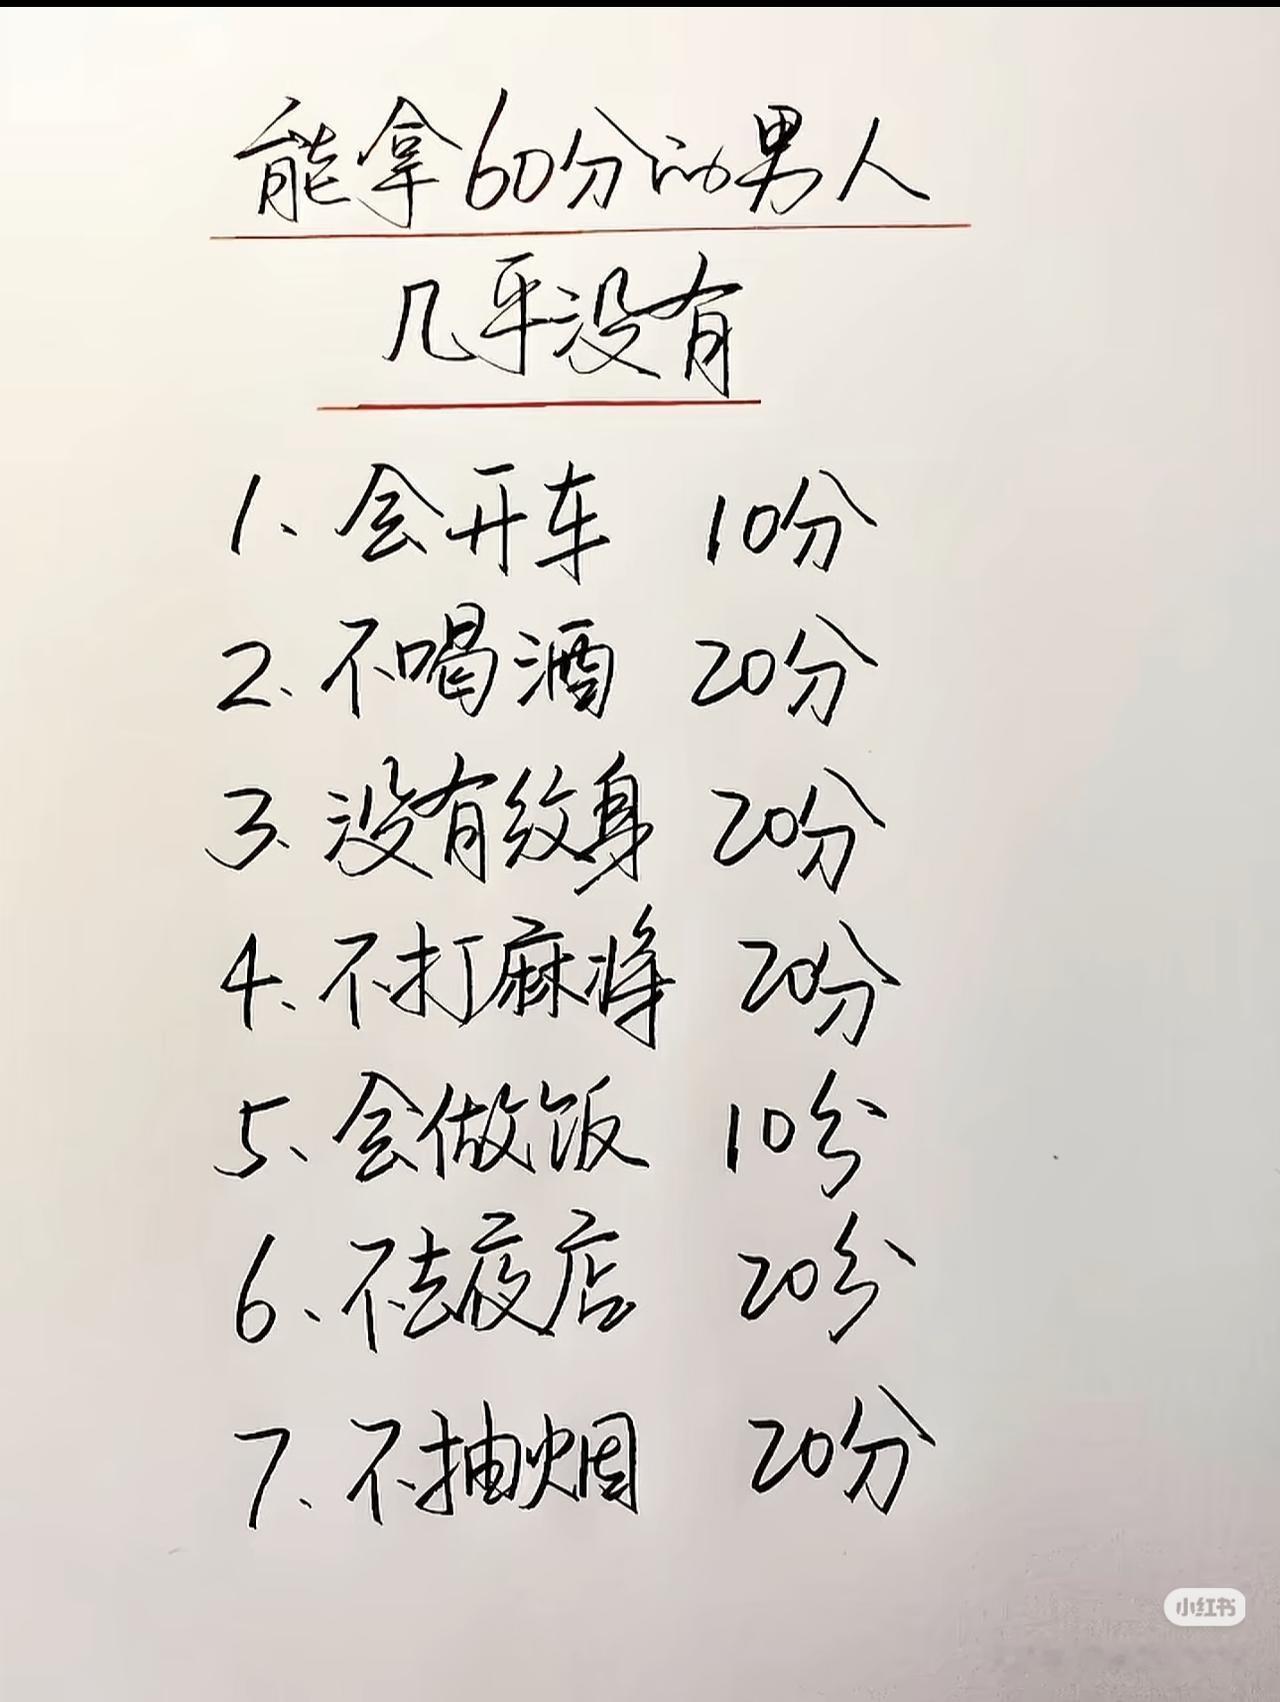 能拿60分的男人
几乎没有
1、会开车 10分
2、不喝酒 20分
3、没有纹身 20分
4、不打麻将 20分
5、会做饭 10分
6、不去夜店 20分
7、不抽烟 20分
小红书